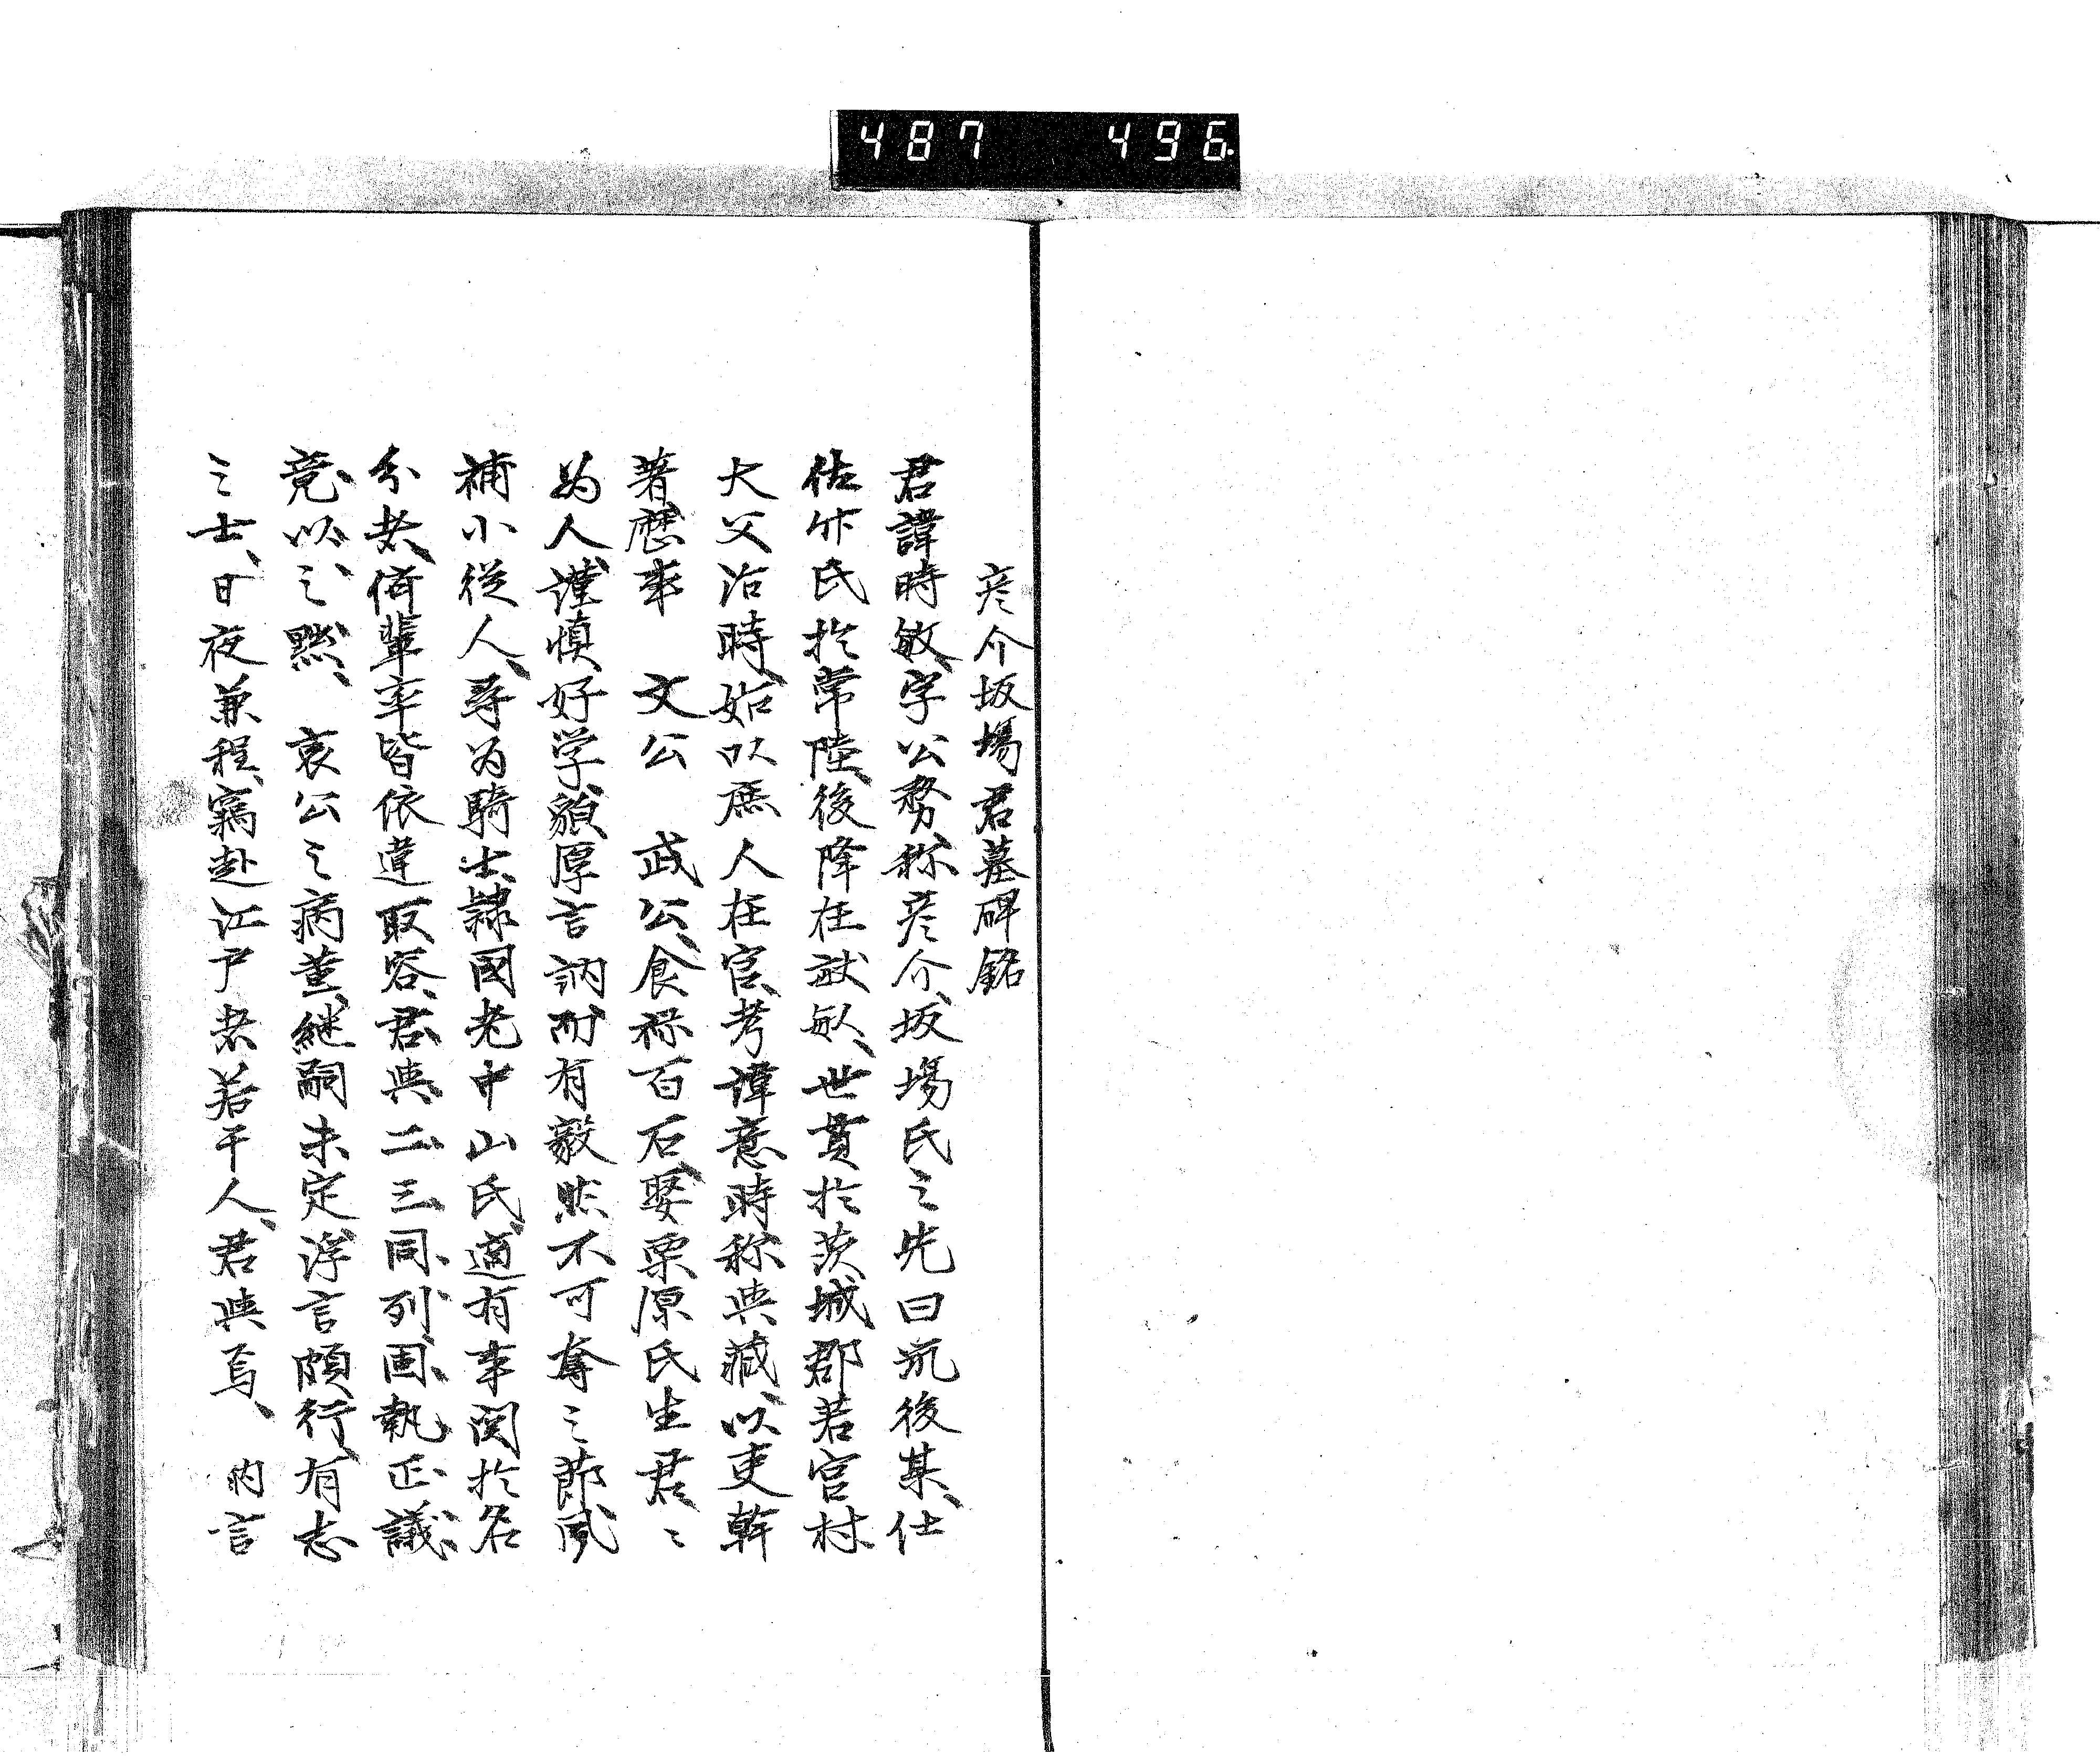 487 496
彦介坂場君墓碑銘
君諱時敏、字公務、称彦介、坂場氏之先曰筑後某、仕
佐竹氏於常陸、後降在畎畝、世貫於茨城郡若宮村
大父治時、始以庶人在官、考諱意時、称典蔵、以吏幹
著、歴事 文公 武公、食禄百石、娶栗原氏生君、〻
為人、謹慎好学、貌厚言訥、而有毅然不可奪之節、夙
補小従人、尋為騎士、隷国老中山氏、適有事関於名
分者、儕輩率皆依違取容、君与二三同列、固執正議、
竟以之黙、 哀公之病革、継嗣未定、浮言頗行、有志
之士、日夜兼程、窃赴江戸者若干人、君与焉、 納言